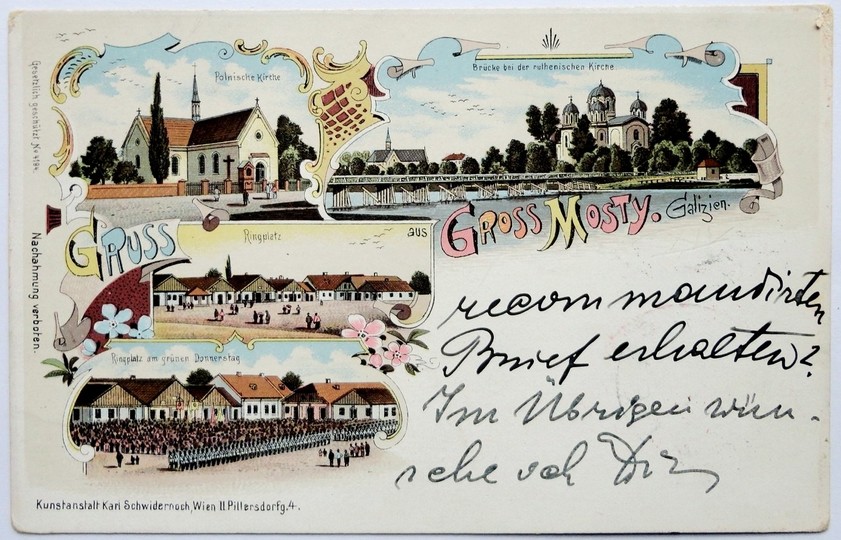 Polnische Kirche
Brücke bei der ruthenischen Kirche
GRUSS aus GROSS MOSTY. Galizien.
Ringplatz
Ringplatz am grünen Donnerstag
recommandirten
Brief erhalten?
Im Übrigen wün-
sche ich Dir
Gesetzlich geschützt No 4194.
Nachahmung verboten.
Kunstanstalt Karl Schwidernoch, Wien II Pillersdorfg. 4.